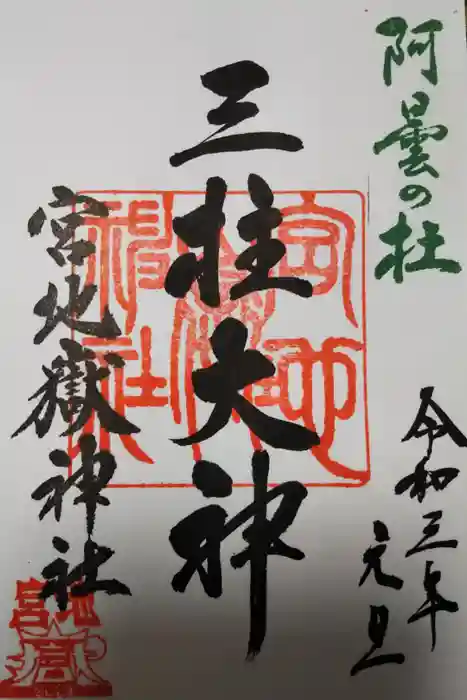 阿曇の杜
令和三年
元旦
三柱大神
宮地嶽神社
宮地嶽神社